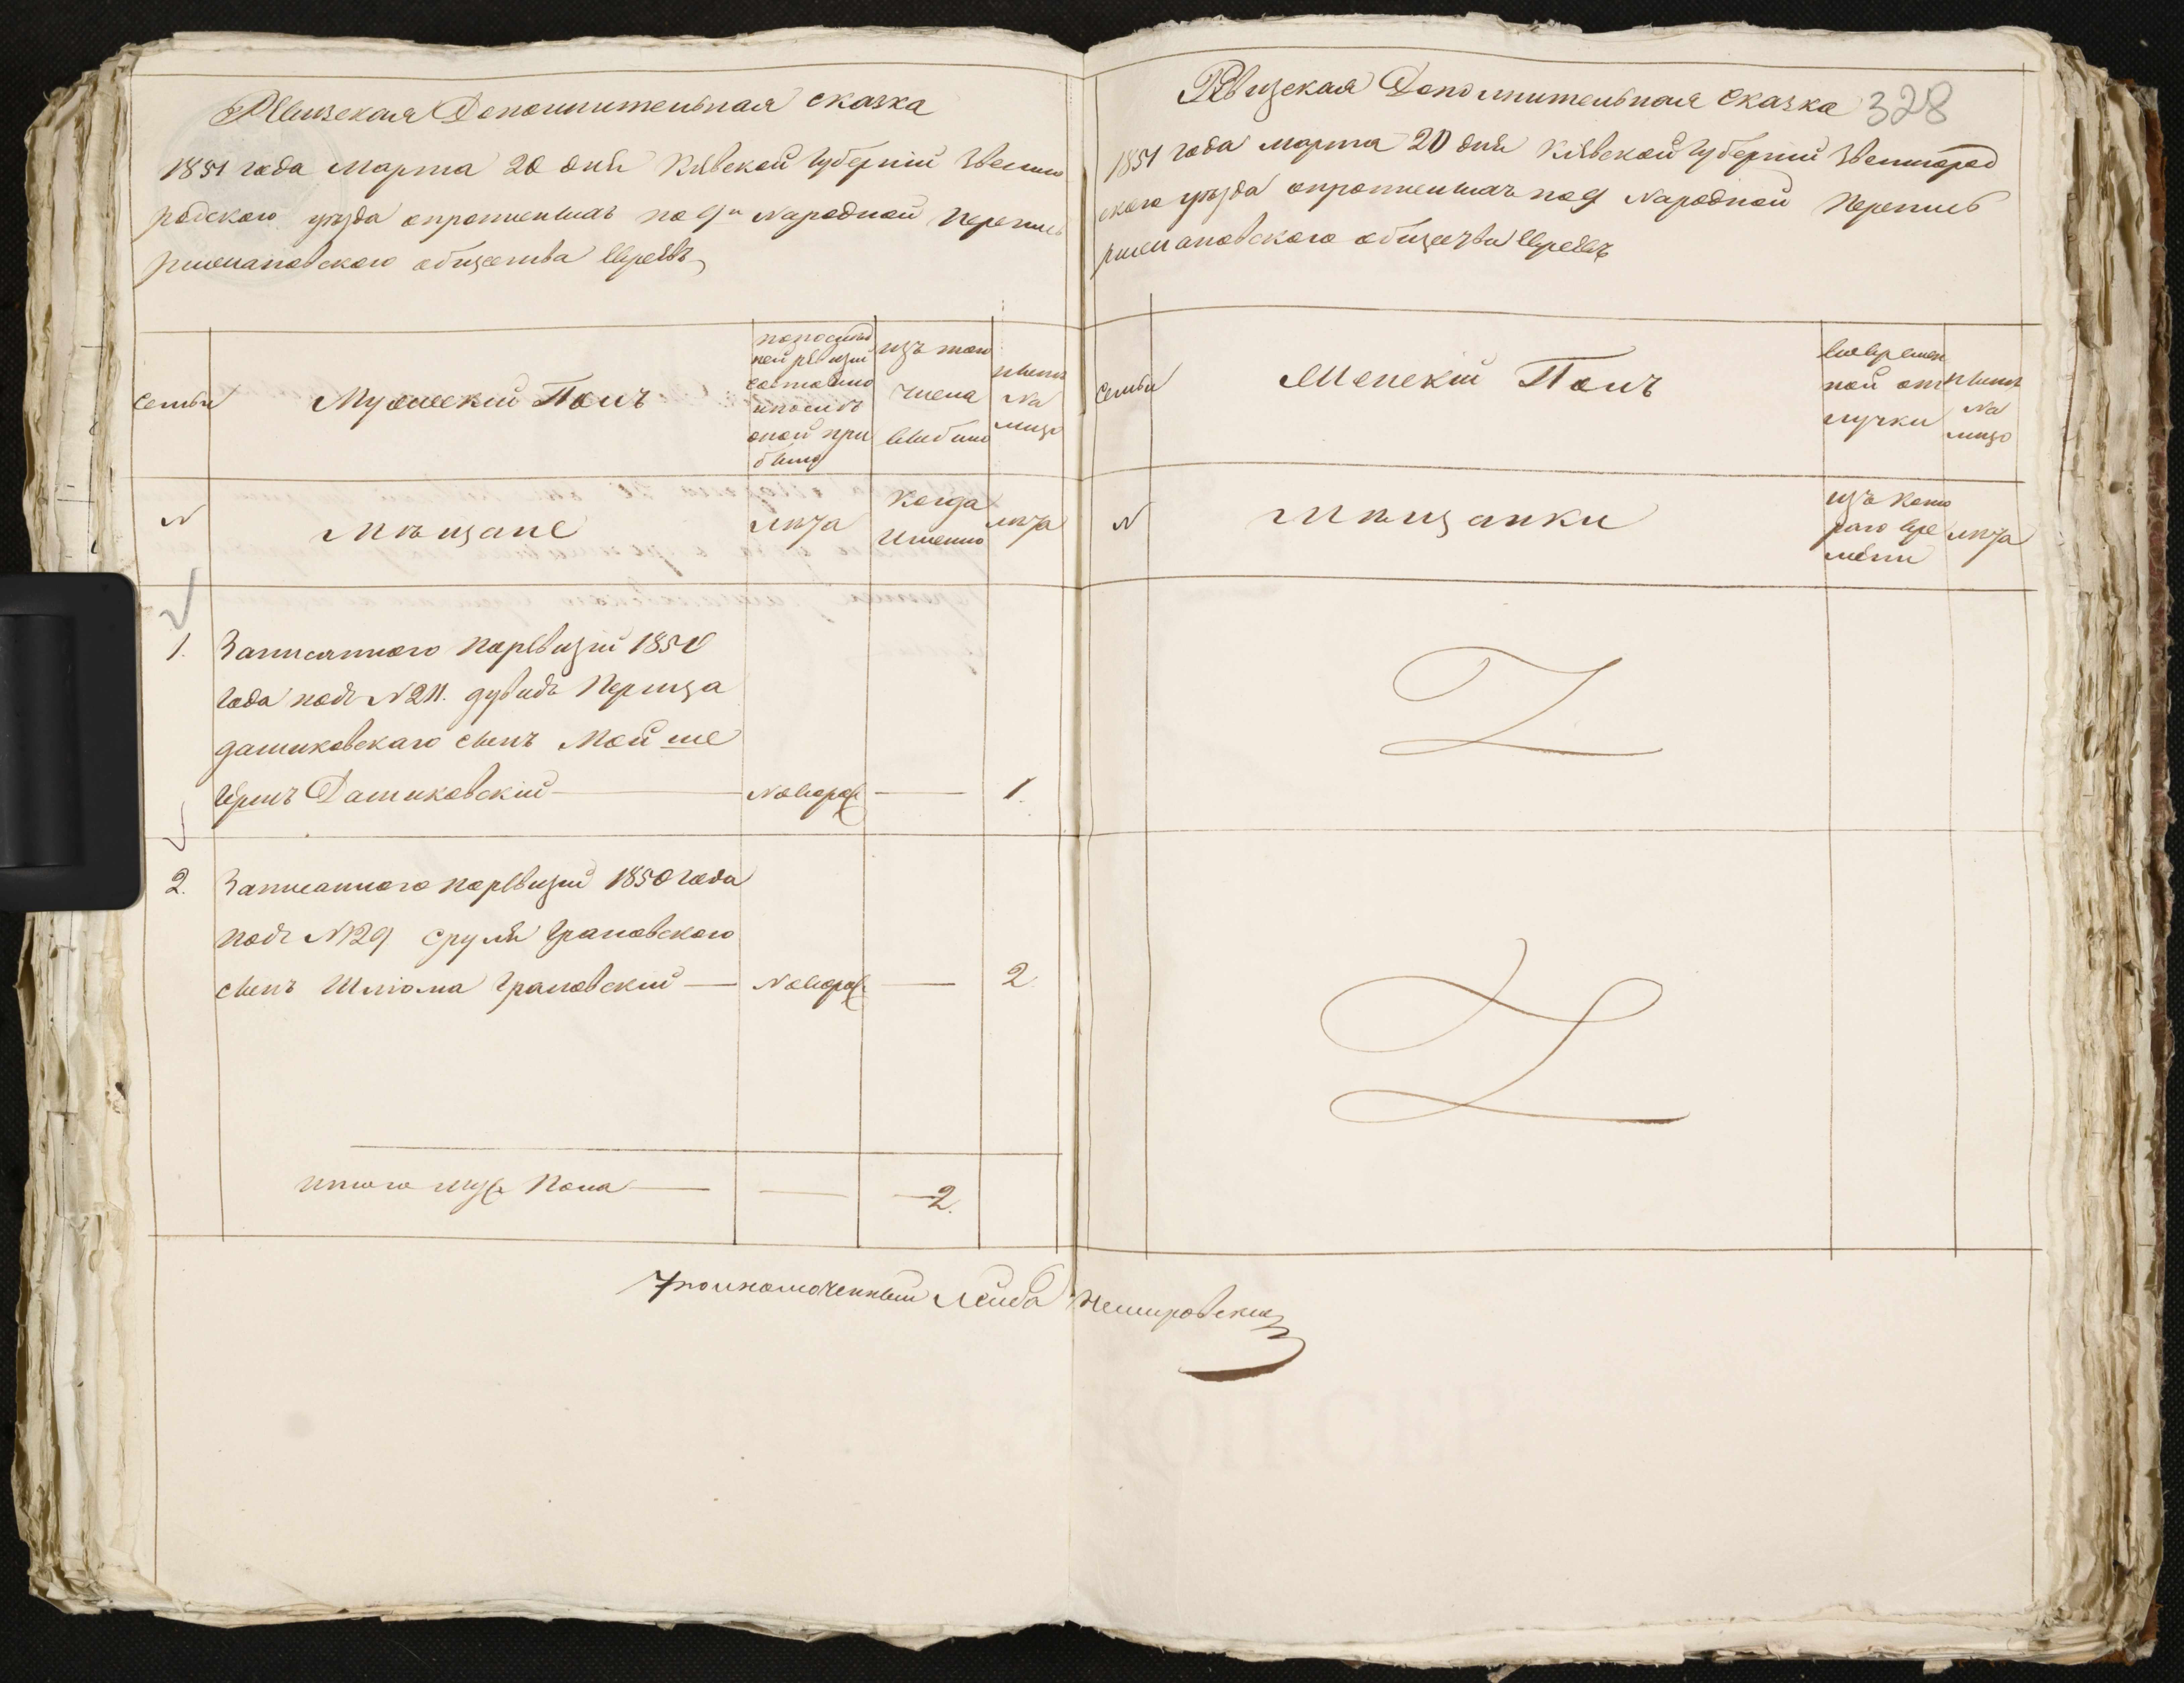 Ревизская Дополнительная сказка
1851 года марта 20 дня Киевской Губернии Звениго
родского уезда опропиенныхъ по 9й Народной Перепис
Рижановского общества Евреевъ
Семьи
Мужеский Полъ
по послед
ней ревизии
состояло
и после
оной при
было
изъ того
числа
выбыло
ныне
на
лицо
N
Мѣщане
лѣта
Когда
Именно
лѣта
1. Записанного по ревизии 1850
года подъ N 211. Дувидъ Перица
Дашковского сынъ Мойше
Герш Дашковский — Новорож — 1.
2. Записанного по ревизии 1850 года
подъ N 129 Сруля Грановского
сынъ Шлиома Грановский — Новорож — 2.
Итого муж Пола — — — 2.
328
Ревизская Дополнительная Сказка
1851 года марта 20 дня Киевской Губернии Звенигород
ского уезда опропиенныхъ по 9 Народной Перепис
Рижановского общества Евреевъ
Семьи
Женский Полъ
во времен
ной от
лучки
ныне
на
лицо
N
Мѣщанки
изъ кото
раго вре
мени
лѣта
Уполномоченный Лейба Немировский